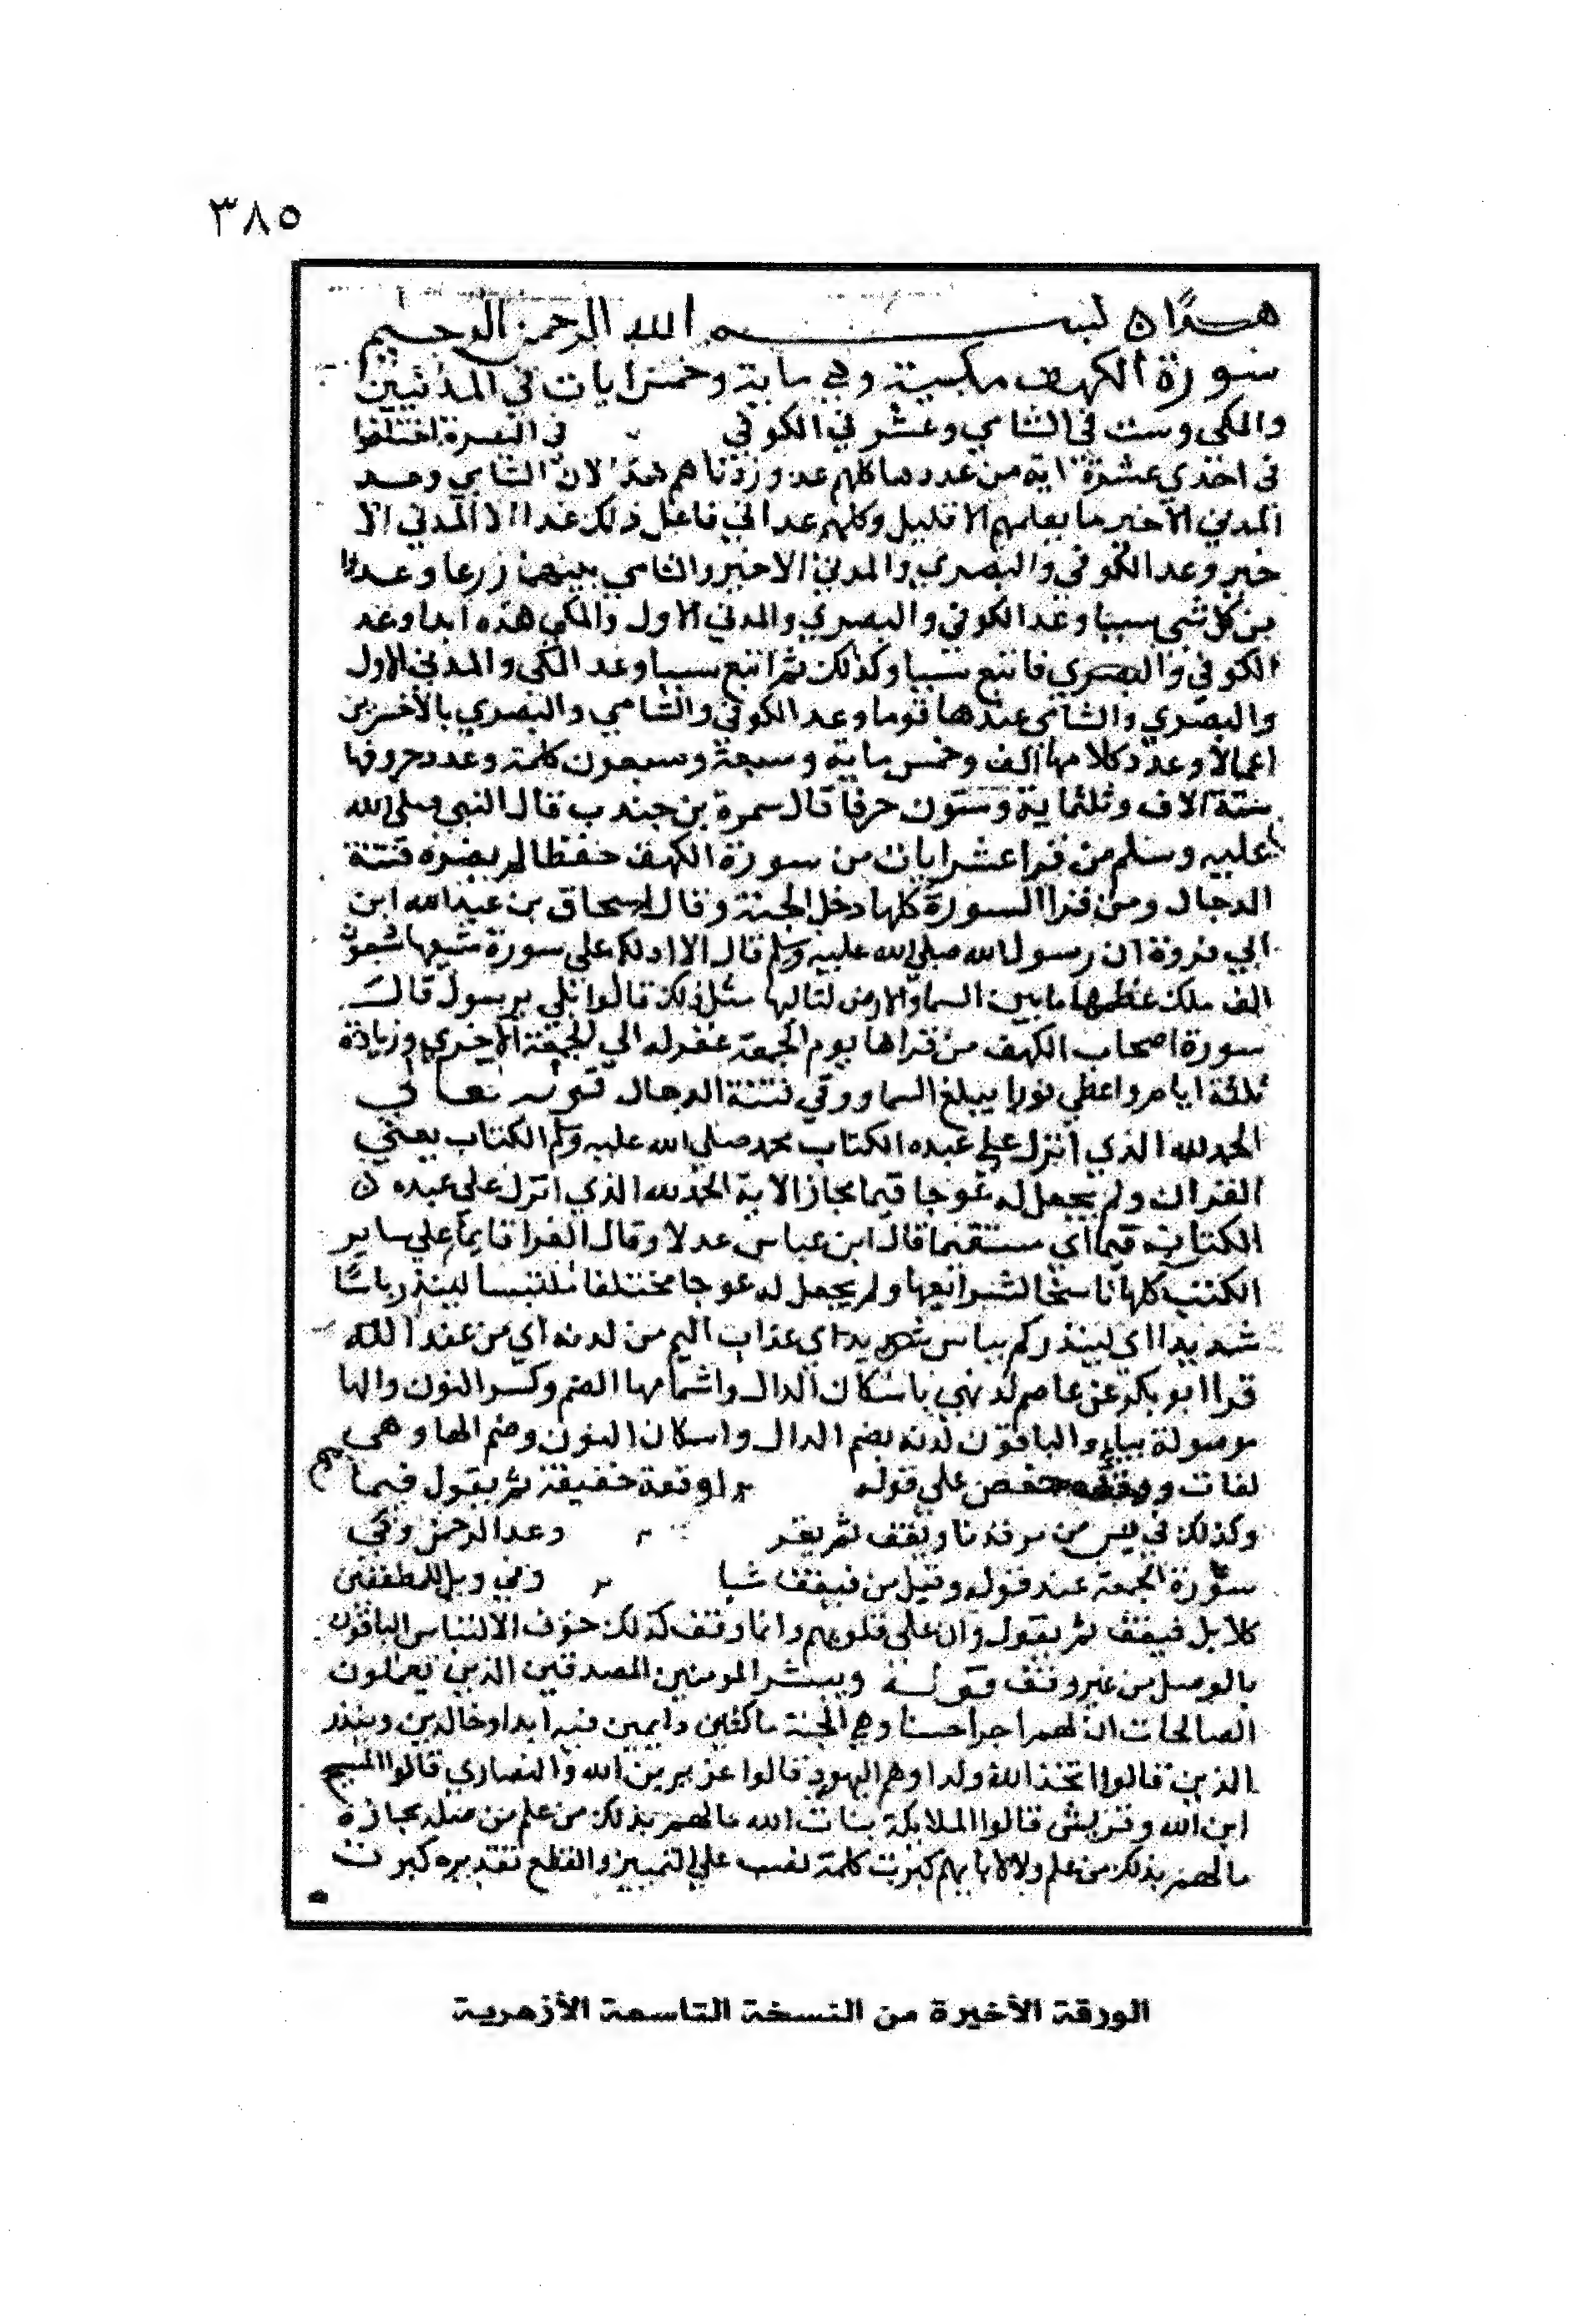 ٣٨٥
هدا ن بسم الله الرحمن الرحيم
سورة الكهف مكية وهي ماية وخمس ايات في المدنيين
والمكي وست في الشامي وعشر في الكوفي في البصرة اختلفوا
في احدي عشرة اية من عددها كلهم عد وزدناهم هدا لان الشامي وعد
المدني الاخير ما يعلمهم الا قليل وكلهم عد اني فاعل ذلك غدا الا المدني الا
خير وعد الكوفي والبصري والمدني الاخير والشامي بينهما زرعا وعدوا
من كل شي سببا وعد الكوفي والبصري والمدني الاول والمكي هذه ابدا وعد
الكوفي والبصري فاتبع سببا وكذلك ثم اتبع سببا وعد المكي والمدني الاول
والبصري والشامي عندها قوما وعد الكوفي والشامي والبصري بالاخسرين
اعمالا وعدد كلامها الف وخمس ماية وسبعة وسبعون كلمة وعدد حروفها
ستة الاف وثلثماية وستون حرفا قال سمرة بن جندب قال النبي صلي الله
عليه وسلم من قرا عشر ايات من سورة الكهف حفظا لم يضره فتنة
الدجال ومن قرا السورة كلها دخل الجنة وقال اسحاق بن عبد الله ابن
ابي فروة ان رسول الله صلي الله عليه وسلم قال الا ادلكم علي سورة شيعها سبعون
الف ملك عظمها ما بين السما والارض لتاليها مثل ذلك قالوا بلي يرسول قال
سورة اصحاب الكهف من قراها يوم الجمعة غفر له الي الجمعة الاخري وزيادة
ثلثة ايام واعطي نورا يبلغ السما ووقي فتنة الدجال قوله تعالي
الحمد لله الذي انزل علي عبده الكتاب محمد صلي الله عليه وسلم الكتاب يعني
القران ولم يجعل له عوجا قيما مجاز الاية الحمد لله الذي انزل علي عبده ن
الكتاب قيما اي مستقيما قال ابن عباس عدلا وقال الفرا قايما علي ساير
الكتب كلها ناسخا لشرايعها ولم يجعل له عوجا مختلفا ملتبسا لينذر باسا
شديدا اي لينذركم بباس شديد اي عذاب اليم من لدنه اي من عند الله
قرا ابو بكر عن عاصم لدنهي باسكان الدال واشمامها الضم وكسر النون والها
موصولة بياء والباقون لدنه بضم الدال واسكان النون وضم الها وهي
لغات حفص علي قوله وقفة خفيفة ثم يقول قيما
وكذلك في يس من مرقدنا ويقف ثم يقر وعد الرحمن وفي
سورة الجمعة عند قوله وقيل من فيقف وفي ويل للمطففين
كلا بل فيقف ثم يقول وان علي قلوبهم وانما وقف كذلك خوف الالتباس الباقون
بالوصل من غير وقف قوله ويبشر المومنين المصدقين الذين يعملون
الصالحات ان لهم اجرا حسنا وهي الجنة ماكثين دايمين فيه ابدا وخالدين وينذر
الذين قالوا اتخذ الله ولدا وهم اليهود قالوا عزير بن الله والنصاري قالوا المسيح
ابن الله وقريش قالوا الملايكة بنات الله ما لهم بذلك من علم من صلة مجازه
ما لهم بذلك من علم ولا لابايهم كبرت كلمة نصب علي التمييز والقطع تقديره كبرت
الورقة الأخيرة من النسخة التاسعة الأزهرية